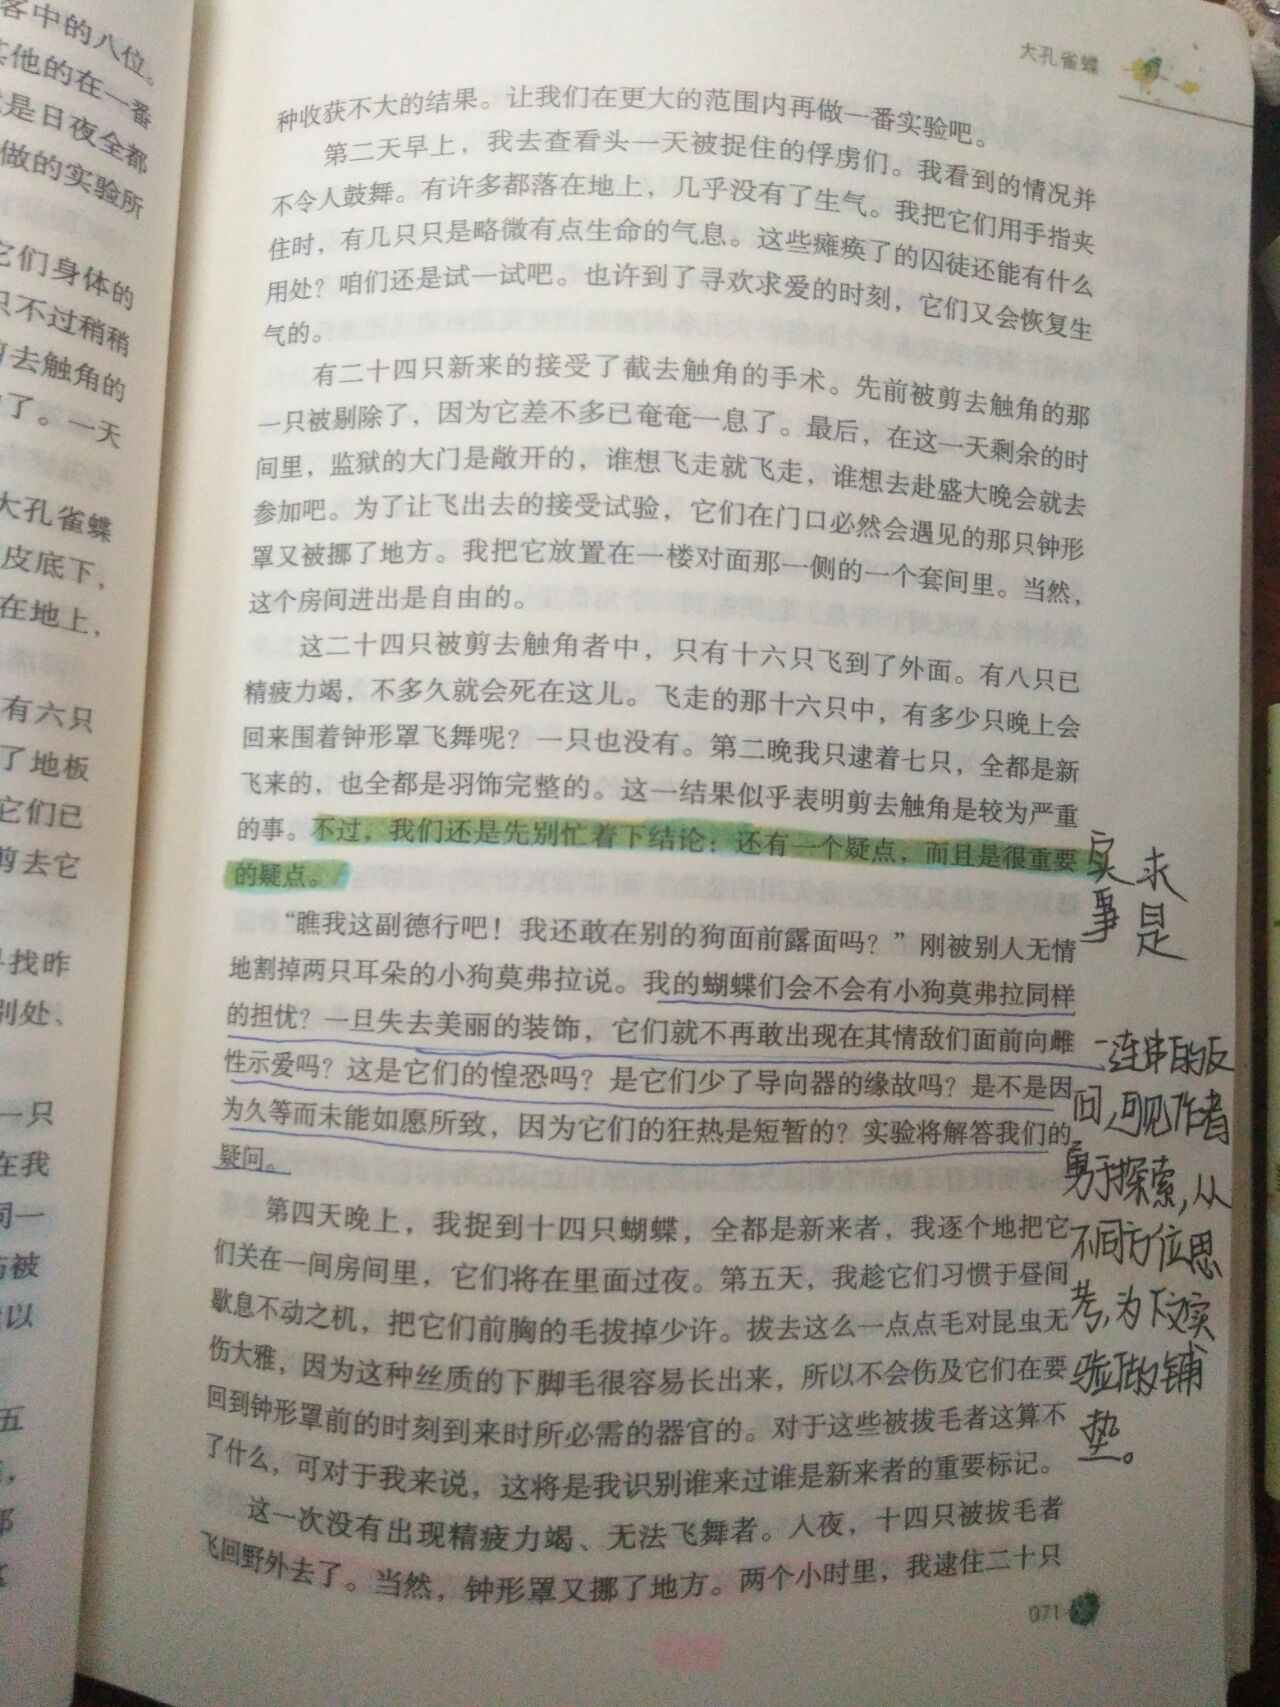 客中的八位。
其他的在一番
是日夜全都
做的实验所
它们身体的
只不过稍稍
去触角的
了。一天
大孔雀蝶
皮底下，
在地上，
有六只
了地板
它们已
剪去它
寻找昨
别处、
一只
在我
同一
被
以
五
大孔雀蝶
种收获不大的结果。让我们在更大的范围内再做一番实验吧。
第二天早上，我去查看头一天被捉住的俘虏们。我看到的情况并
不令人鼓舞。有许多都落在地上，几乎没有了生气。我把它们用手指夹
住时，有几只只是略微有点生命的气息。这些瘫痪了的囚徒还能有什么
用处？咱们还是试一试吧。也许到了寻欢求爱的时刻，它们又会恢复生
气的。
有二十四只新来的接受了截去触角的手术。先前被剪去触角的那
一只被剔除了，因为它差不多已奄奄一息了。最后，在这一天剩余的时
间里，监狱的大门是敞开的，谁想飞走就飞走，谁想去赴盛大晚会就去
参加吧。为了让飞出去的接受试验，它们在门口必然会遇见的那只钟形
罩又被挪了地方。我把它放置在一楼对面那一侧的一个套间里。当然，
这个房间进出是自由的。
这二十四只被剪去触角者中，只有十六只飞到了外面。有八只已
精疲力竭，不多久就会死在这儿。飞走的那十六只中，有多少只晚上会
回来围着钟形罩飞舞呢？一只也没有。第二晚我只逮着七只，全都是新
飞来的，也全都是羽饰完整的。这一结果似乎表明剪去触角是较为严重
的事。不过，我们还是先别忙着下结论：还有一个疑点，而且是很重要
的疑点。
“瞧我这副德行吧！我还敢在别的狗面前露面吗？”刚被别人无情
地割掉两只耳朵的小狗莫弗拉说。我的蝴蝶们会不会有小狗莫弗拉同样
的担忧？一旦失去美丽的装饰，它们就不再敢出现在其情敌们面前向雌
性示爱吗？这是它们的惶恐吗？是它们少了导向器的缘故吗？是不是因
为久等而未能如愿所致，因为它们的狂热是短暂的？实验将解答我们的
疑问。
第四天晚上，我捉到十四只蝴蝶，全都是新来者，我逐个地把它
们关在一间房间里，它们将在里面过夜。第五天，我趁它们习惯于昼间
歇息不动之机，把它们前胸的毛拔掉少许。拔去这么一点点毛对昆虫无
伤大雅，因为这种丝质的下脚毛很容易长出来，所以不会伤及它们在要
回到钟形罩前的时刻到来时所必需的器官的。对于这些被拔毛者这算不
了什么，可对于我来说，这将是我识别谁来过谁是新来者的重要标记。
这一次没有出现精疲力竭、无法飞舞者。入夜，十四只被拔毛者
飞回野外去了。当然，钟形罩又挪了地方。两个小时里，我逮住二十只
071
实事
求是
一连串的反
问，可见作者
勇于探索，从
不同方位思
考，为下文实
验做铺
垫。